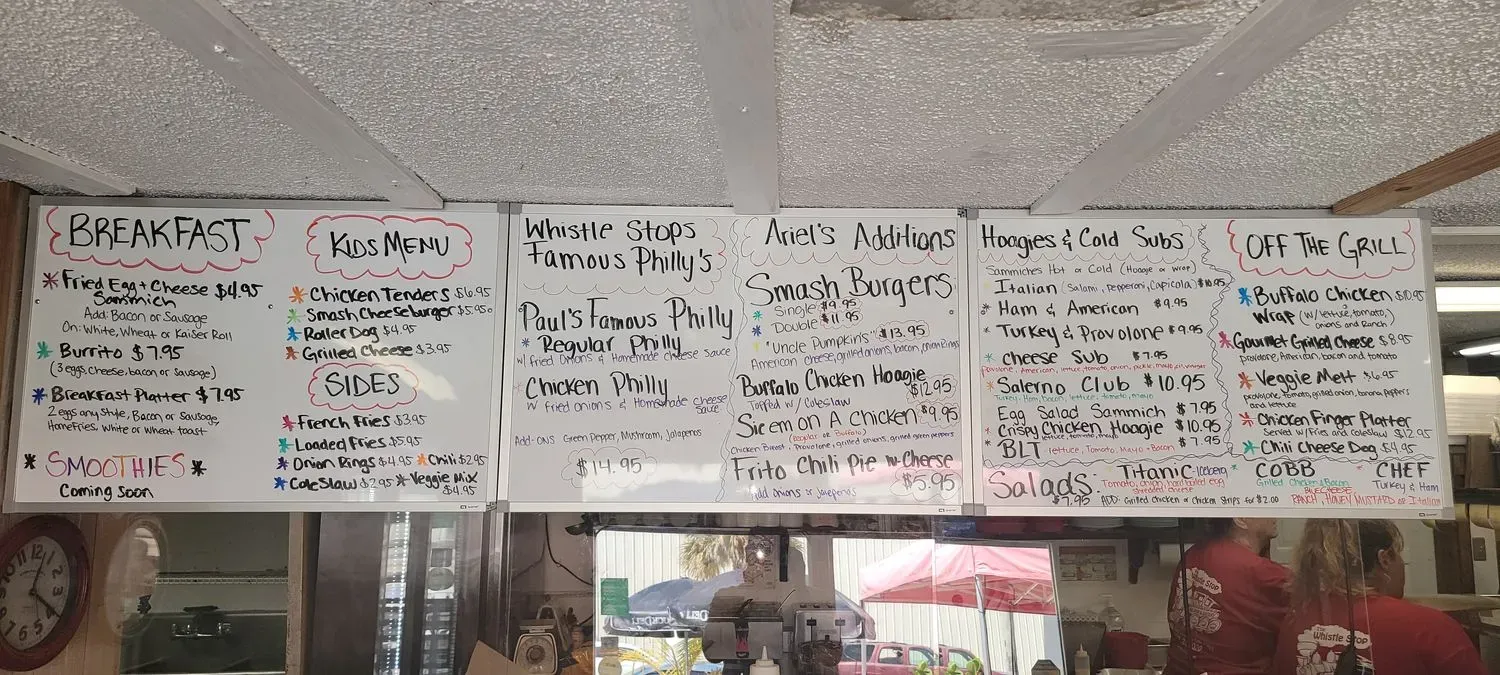 BREAKFAST
Fried Egg + Cheese $4.95
Sammich
Add: Bacon or Sausage
On: White, Wheat or Kaiser Roll
Burrito $7.95
(3 eggs, cheese, bacon, or Sausage)
Breakfast Platter $7.95
2 eggs any Style, Bacon, or Sausage,
Homefries, White or Wheat toast
SMOOTHIES
Coming Soon
KIDS MENU
Chicken Tenders $6.95
Smash Cheeseburger $5.95
Roller Dog $4.95
Grilled Cheese $3.95
SIDES
French Fries $3.95
Loaded Fries $5.95
Onion Rings $4.95 Chili $2.95
Cole Slaw $2.95 Veggie Mix
$4.95
Whistle Stops
Famous Philly's
Paul's Famous Philly
Regular Philly
w/ fried Onions & Homemade cheese sauce
Chicken Philly
w/ fried onions & Homemade cheese
sauce
Add-ons Green Pepper, Mushroom, Jalapenos
$14.95
Ariel's Additions
Smash Burgers
Single $9.95
Double $11.95
"Uncle Pumpkins" $13.95
American cheese, grilled onions, bacon, onion Rings
Buffalo Chicken Hoagie
Topped w/ Coleslaw $12.95
Sic em on A chicken $9.95
(Regular or Buffalo)
Chicken Breast, Provolone, grilled onions, grilled green peppers
Frito Chili Pie w/ Cheese
Add onions or Jalepenos $5.95
Hoagies & Cold Subs
Sammiches Hot or Cold (Hoagie or Wrap)
Italian (Salami, pepperoni, Capicola) $10.95
Ham & American $9.95
Turkey & Provolone $9.95
cheese Sub $7.95
provolone, American, lettuce, tomato, onion, pickle, mayo, oil, vinegar
Salerno Club $10.95
Turkey, Ham, bacon, lettuce, tomato, mayo
Egg Salad Sammich $7.95
Crispy Chicken Hoagie $10.95
lettuce, tomato, mayo
BLT lettuce, Tomato, Mayo + Bacon $7.95
OFF THE GRILL
Buffalo Chicken $10.95
Wrap (w/ lettuce, tomato,
onions and Ranch)
Gourmet Grilled Cheese $8.95
provolone, American, bacon and tomato
Veggie Melt $6.95
provolone, tomato, grilled onion, banana peppers
and lettuce
Chicken Finger Platter
Served w/ Fries and Coleslaw $12.95
Chili Cheese Dog $4.95
Salads:
$7.95
Titanic - Iceberg
Tomato, onion, hard boiled egg
shredded cheese
COBB
Grilled Chicken & Bacon
CHEF
Turkey & Ham
ADD: Grilled Chicken or Chicken Strips for $2.00
BLUE CHEESE
RANCH, HONEY MUSTARD or Italian
The Whistle Stop
The Whistle Stop